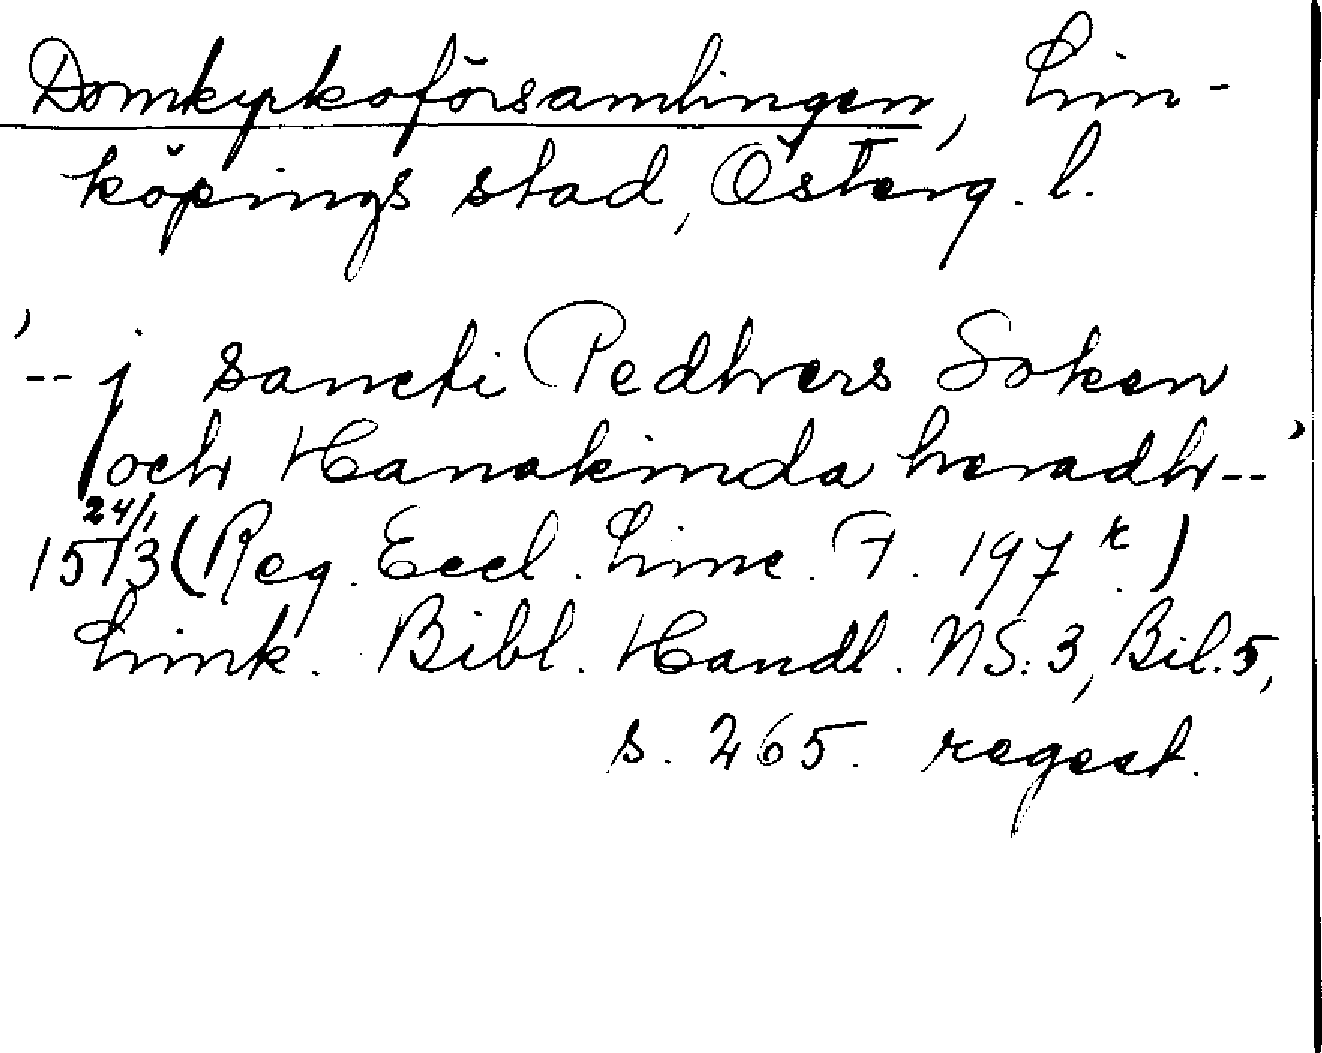 Domkyrkoförsamlingen, Lin-
köpings stad, Österg. l.
'-- j sancti Pedhers Soken
och Hanakinda heradh--'
24/1
1513 (Reg. Eccl. Linc. F. 197 r.)
Link. Bibl. Handl. NS:3, Bil.5,
s. 265. regest.